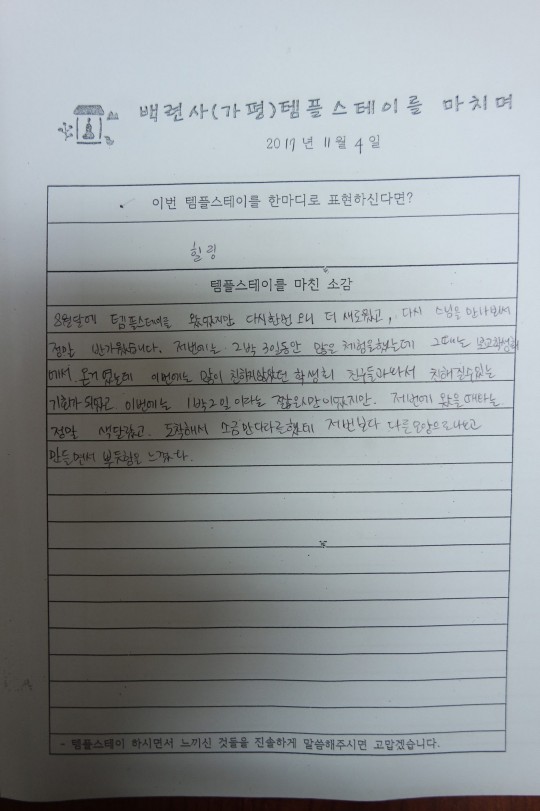 백련사(가평)템플스테이를 마치며
2017년 11월 4일
이번 템플스테이를 한마디로 표현하신다면?
힐링
템플스테이를 마친 소감
8월달에 템플스테이를 왔었지만 다시한번 오니 더 새로웠고, 다시 스님을 만나봬서
정말 반가웠습니다. 저번에는 2박 3일동안 많은 체험을했는데 그때는
에서 온거 였는데 이번에는 많이 친하지않았던 학생회 친구들과와서 친해질수있는
기회가 되었고 이번에는 1박2일 이라는 짧은시간이었지만. 저번에 왔을때와는
정말 색달랐고. 도착해서 소금만다라를했는데 저번보다 다른모양으로나오고
만들면서 뿌듯함을 느꼈다.
- 템플스테이 하시면서 느끼신 것들을 진솔하게 말씀해주시면 고맙겠습니다.